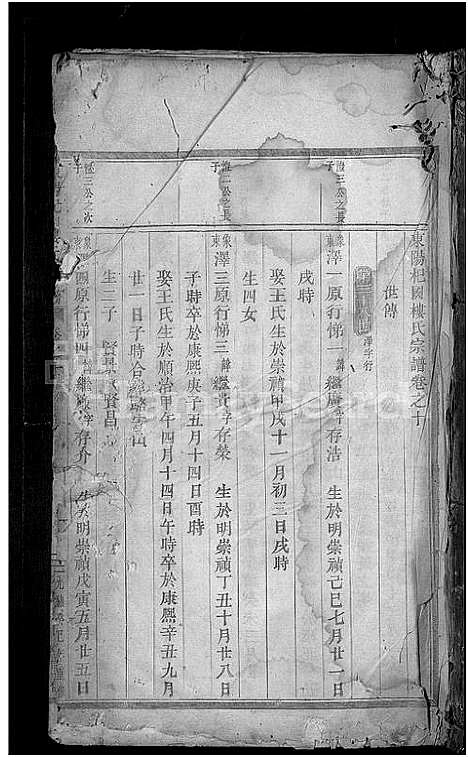 東陽杞國樓氏宗譜卷之十
世傳
澤字行
澄三公之長子
象東
澤一原行悌一諱繼廉字存洁 生於明崇禎己巳七月廿一日
戌時
娶 氏生於崇禎甲戌十一月初三日戌時
生四女
澄二公之長子
象東
澤三原行悌三諱繼貴字存榮 生於明崇禎丁丑十月廿八日
子時卒於康熙庚子五月十四日酉時
娶王氏生於順治甲午四月十四日午時卒於康熙辛丑九月
廿一日子時合
生二子 賢 賢昌
澄三公之次子
象
四原行悌四諱繼 字存介 生於明崇禎戊寅五月廿五日